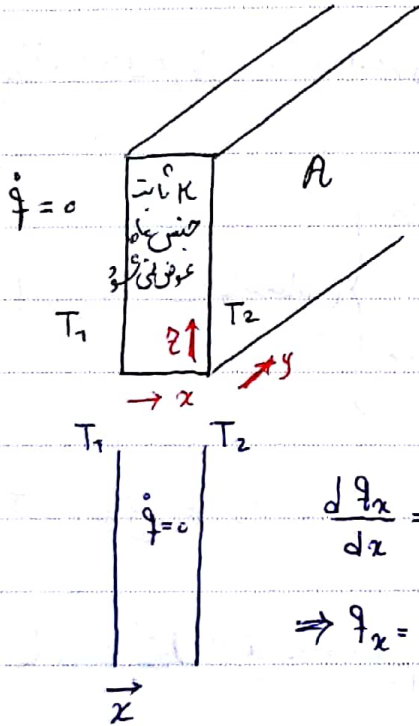 A
q̇ = 0
K ثابت
جنس ماده
عوض نمی شود
T₁
T₂
z
y
x
T₁
T₂
q̇=0
dqₓ/dx =
⇒ qₓ =
x